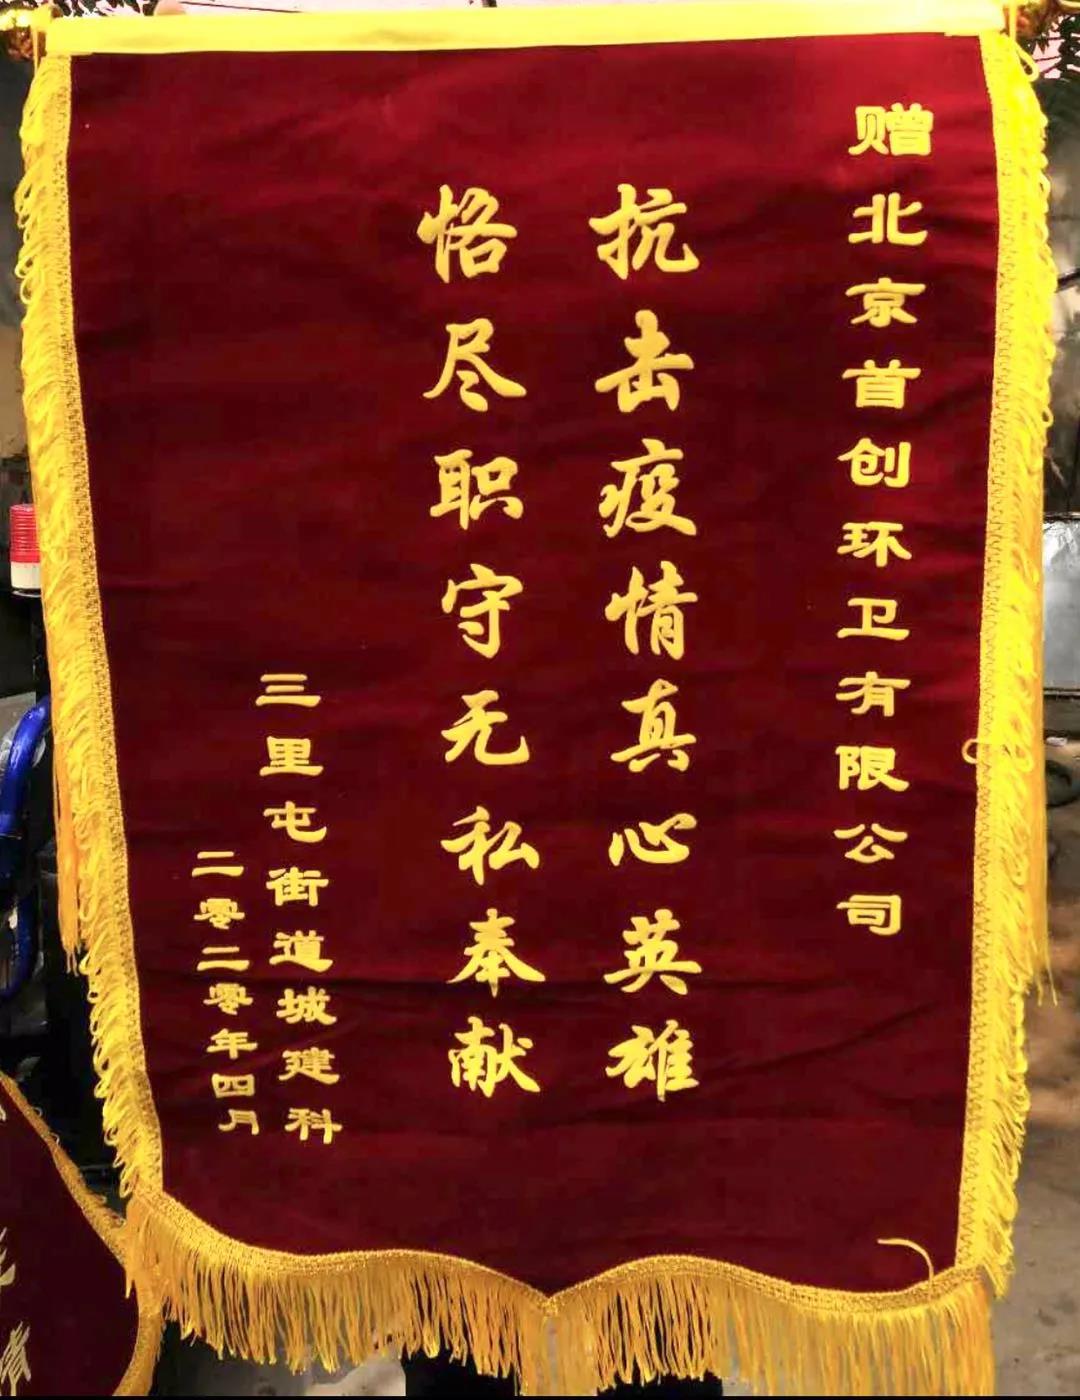 赠北京首创环卫有限公司
抗击疫情真心英雄
恪尽职守无私奉献
三里屯街道城建科
二零二零年四月